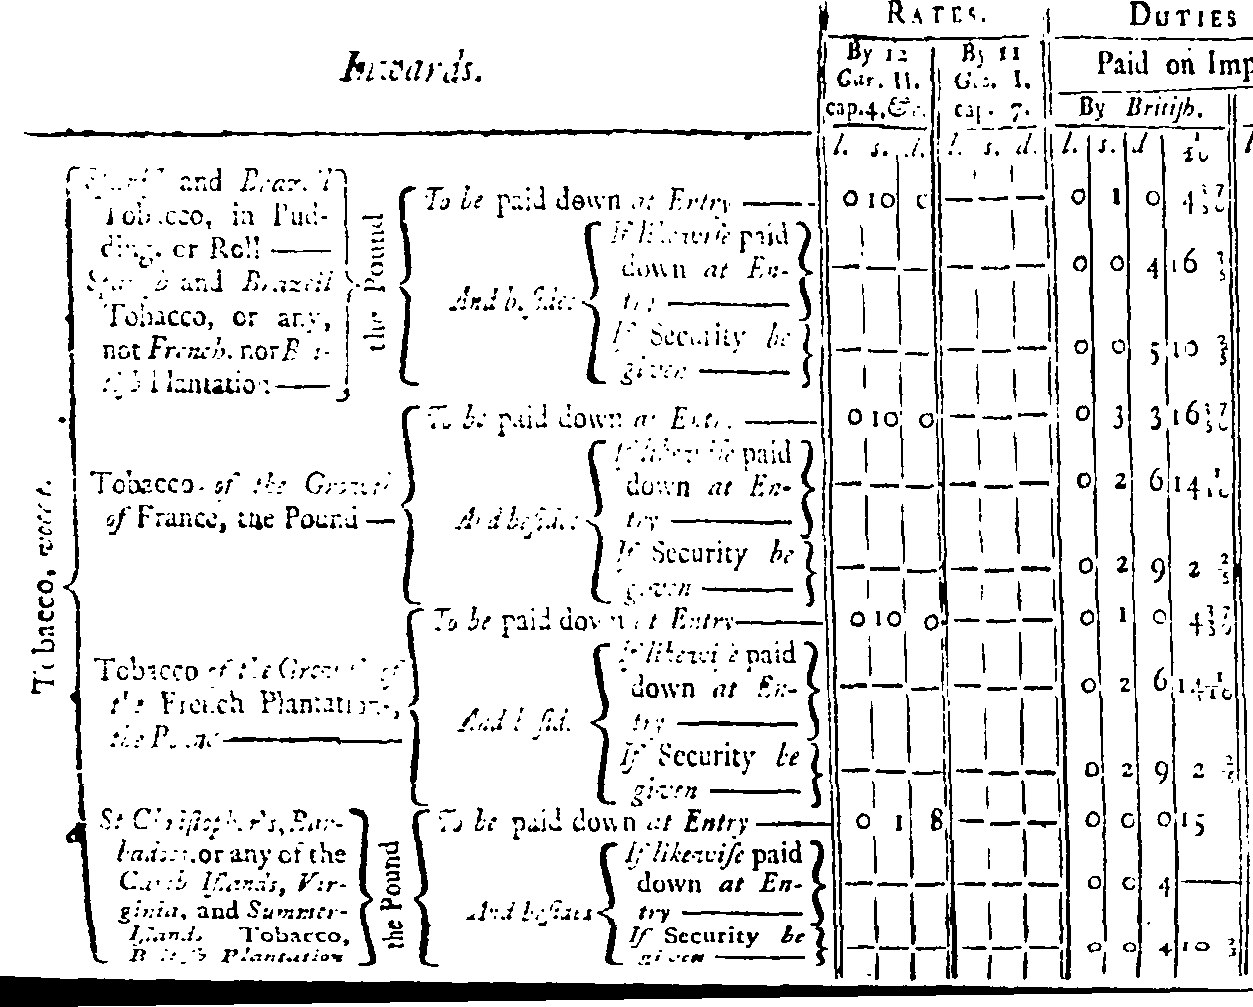 RATES.
DUTIES
Inwards.
By 12
Car. II.
cap. 4, &c.
By 11
Geo. I.
cap. 7.
Paid on Imp
By Britiſh.
l. s. d. l. s. d. l. s. d 1/20
Tobacco, vocat.
and Brazil
Tobacco, in Pud-
ding, or Roll —
Spaniſh and Brazeil
Tobacco, or any,
not French, nor Bri-
tiſh Plantation —
the Pound
To be paid down at Entry — 0 10 0 — — — 0 1 0 4
And beſides
If likewiſe paid
down at En- — — — — — — 0 0 4 16
try —
If Security be — — — — — — 0 0 5 10 2/5
given —
To be paid down at Entry — 0 10 0 — — — 0 3 3 16
Tobacco of the Growth
of France, the Pound —
And beſides
If likewiſe paid
down at En- — — — — — — 0 2 6 14
try —
If Security be
given — — — — — — — 0 2 9 2 2/5
To be paid down at Entry — 0 10 0 — — — 0 1 0 4
Tobacco of the Growth of
the French Plantations,
the Pound —
And beſides
If likewiſe paid
down at En- — — — — — — 0 2 6 14
try —
If Security be — — — — — — 0 2 9 2 2/5
given —
To be paid down at Entry — 0 1 8 — — — 0 0 0 15
St Chriſtopher's, Bar-
badoes, or any of the
Carib Iſlands, Vir-
ginia, and Summer-
Iſlands Tobacco,
Britiſh Plantation
the Pound
And beſides
If likewiſe paid
down at En- — — — — — — 0 0 4 —
try —
If Security be — — — — — — 0 0 4 10
given —